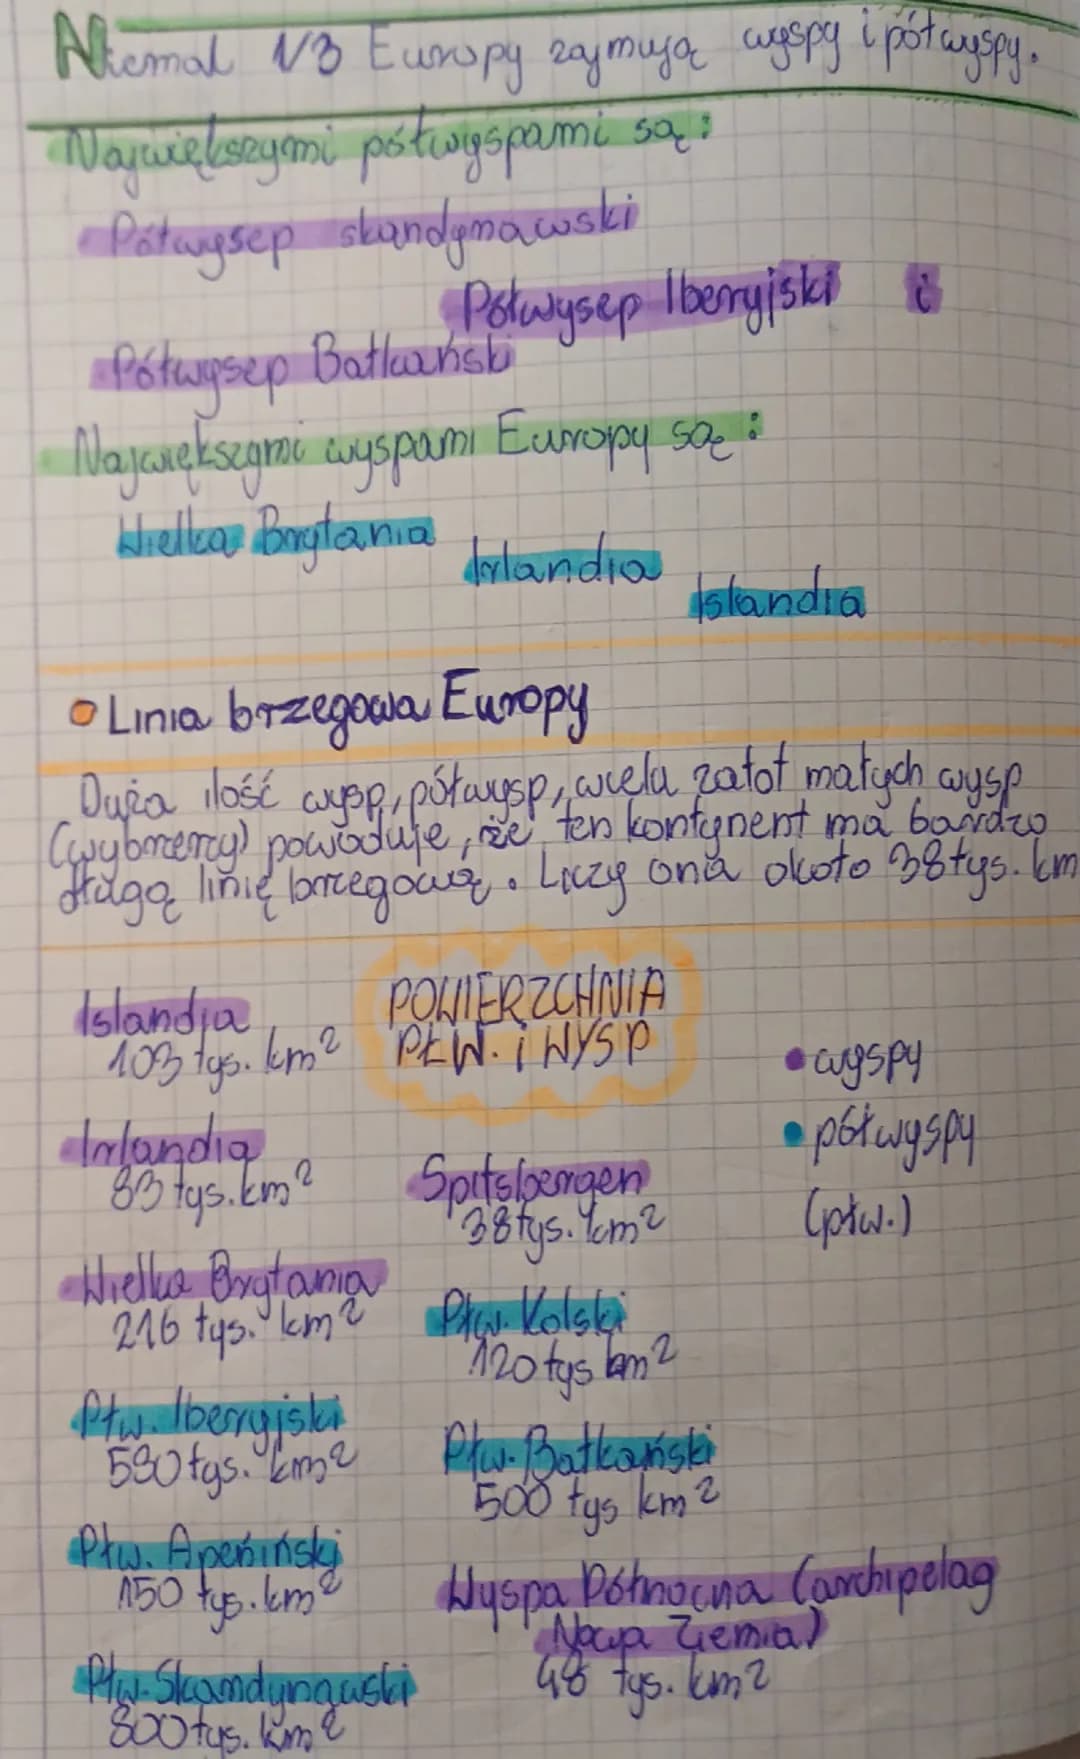 Niemal 1/3 Europy zajmują wyspy i półwyspy.
Największymi półwyspami są:
Półwysep skandynawski
Półwysep Iberyjski i
Półwysep Bałkański
Największymi wyspami Europy są:
Wielka Brytania
Irlandia
Islandia
Linia brzegowa Europy
Duża ilość wysp, półwysp, wielu zatot małych wysp
(wybrzerzy) powoduje, że ten kontynent ma bardzo
długą linię brzegową. Liczy ona około 38 tys. km
POWIERZCHNIA
PŁW. i WYSP
• wyspy
• półwyspy
(płw.)
Islandia
103 tys. km²
Irlandia
83 tys. km²
Wielka Brytania
216 tys. km²
Płw. Iberyjski
580 tys. km²
Płw. Apeniński
150 tys. km²
Płw. Skandynawski
800 tys. km²
Spitsbergen
38 tys. km²
Płw. Kolski
120 tys km²
Płw. Bałkański
500 tys km²
Wyspa Północna (archipelag
Nowa Ziemia)
48 tys. km²